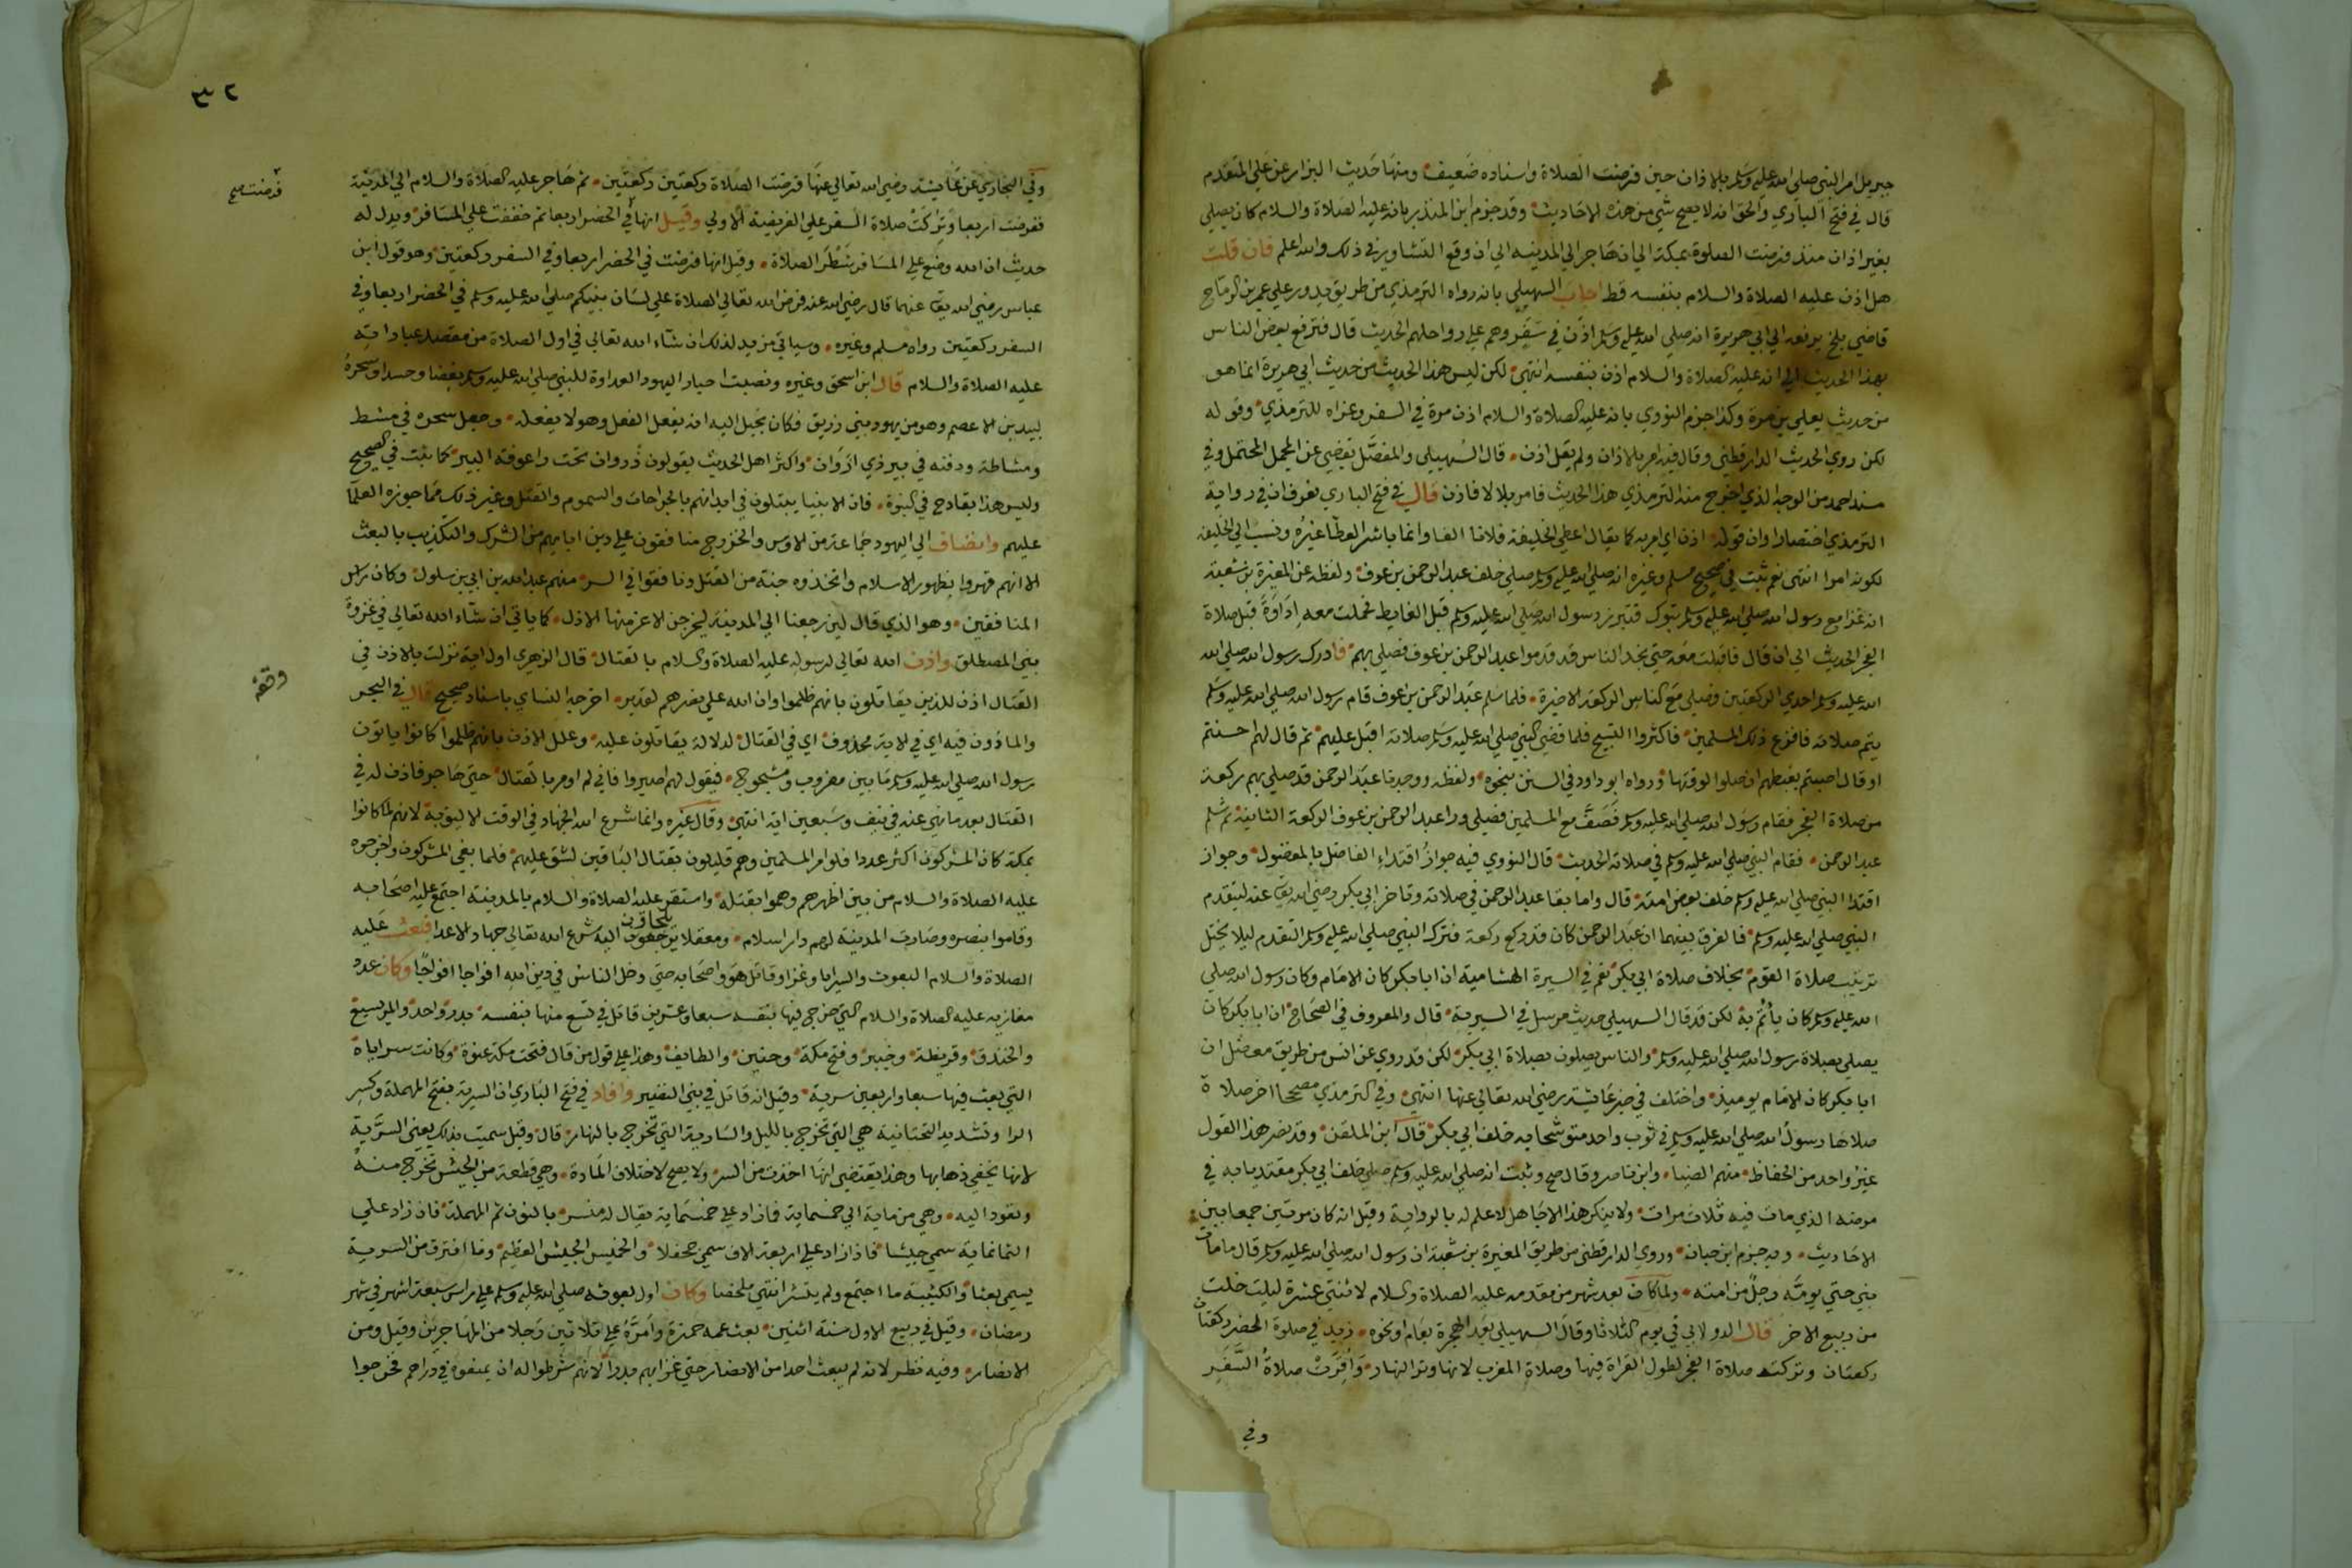 جبريل امر النبي صلى الله عليه وسلم بالاذان حين فرضت الصلاة واسناده ضعيف ومنها حديث البزار عن علي المتقدم
قال في فتح الباري والحق انه لا يصح شي من هذه الاحاديث وقد جزم ابن المنذر بانه عليه الصلاة والسلام كان يصلي
بغير اذان منذ فرضت الصلوة بمكة الى ان هاجر الى المدينه الى ان وقع التشاور في ذلك والله اعلم فان قلت
هل اذن عليه الصلاة والسلام بنفسه قط اجاب السهيلي بانه رواه الترمذي من طريق يدور على عمر بن الرماح
قاضي بلخ يرفعه الى ابي هريرة انه صلى الله عليه وسلم اذن في سفر وهم على رواحلهم الحديث قال فترفع بعض الناس
بهذا الحديث الى انه عليه الصلاة والسلام اذن بنفسه انتهى لكن ليس هذا الحديث من حديث ابي هريرة انما هو
من حديث يعلى بن مرة وكذا جزم النووي بانه عليه الصلاة والسلام اذن مرة في السفر وعزاه للترمذي وقوله
لكن روي الحديث الدارقطني وقال فيه امر بالاذان ولم يقل اذن قال السهيلي والمفصل يقضي عن المجمل المحتمل وفي
مسند احمد من الوجه الذي اخرج منه الترمذي هذا الحديث فامر بلالا فاذن قال في فتح الباري فعرف ان في رواية
الترمذي اختصارا وان قوله اذن اي امر به كما يقال اعطى الخليفة فلانا الفا وانما باشر العطا غيره ونسب الى الخليفه
لكونه امرا انتهى نعم ثبت في صحيح مسلم وغيره انه صلى الله عليه وسلم صلى خلف عبد الرحمن بن عوف ولفظه عن المغيرة بن شعبة
انه غزا مع رسول الله صلى الله عليه وسلم تبوك فتبرز رسول الله صلى الله عليه وسلم قبل الغايط فحملت معه إداوة قبل صلاة
الفجر الحديث الى ان قال فاقبلت معه حتى نجد الناس قد قدموا عبد الرحمن بن عوف فصلى بهم فادرك رسول الله صلى الله
الله عليه وسلم احدى الركعتين فصلى مع الناس الركعة الاخيرة فلما سلم عبد الرحمن بن عوف قام رسول الله صلى الله عليه وسلم
يتم صلاته فافزع ذلك المسلمين فاكثروا التسبيح فلما قضى النبي صلى الله عليه وسلم صلاته اقبل عليهم ثم قال لهم احسنتم
او قال اصبتم يغبطهم ان صلوا لوقتها ورواه ابو داود في السنن بنحوه ولفظه ووجدنا عبد الرحمن قد صلى بهم ركعة
من صلاة الفجر فقام رسول الله صلى الله عليه وسلم فصف مع المسلمين فصلى ورا عبد الرحمن بن عوف الركعة الثانية ثم سلم
عبد الرحمن فقام النبي صلى الله عليه وسلم في صلاته الحديث قال النووي فيه جواز اقتداء الفاضل بالمفضول وجواز
اقتدا النبي صلى الله عليه وسلم خلف بعض امته قال واما بقا عبد الرحمن في صلاته وتاخر ابي بكر رضي الله تعا عنه ليتقدم
النبي صلى الله عليه وسلم فالفرق بينهما ان عبد الرحمن كان قد ركع ركعة فترك النبي صلى الله عليه وسلم التقدم ليلا يختل
ترتيب صلاة القوم بخلاف صلاة ابي بكر نعم في السيرة الهشامية ان ابا بكر كان الامام وكان رسول الله صلى
الله عليه وسلم كان يأتم به لكن قد قال السهيلي حديث مرسل في السيرة قال والمعروف في الصحاح ان ابا بكر كان
يصلي بصلاة رسول الله صلى الله عليه وسلم والناس يصلون بصلاة ابي بكر لكن قد روي عن انس من طريق معضل ان
ابا بكر كان الامام يوميذ واختلف في خبر عايشة رضي الله تعالى عنها انتهى وفي الترمذي مصححا اخر صلاة
صلاها رسول الله صلى الله عليه وسلم في ثوب واحد متوشحا به خلف ابي بكر قال ابن الملقن وقد نصر هذا القول
غير واحد من الحفاظ منهم الضيا وابن ناصر وقال صح وثبت انه صلى الله عليه وسلم صلى خلف ابي بكر مقتديا به في
مرضه الذي مات فيه ثلاث مرات ولا ينكر هذا الا جاهل لا علم له بالرواية وقيل انه كان مرتين جمعا بين
الاحاديث وبه جزم ابن حبان وروي الدارقطني من طريق المغيرة بن شعبة ان رسول الله صلى الله عليه وسلم قال ما مات
نبي حتى يومه رجل من امته ولما كان بعد شهر من مقدمه عليه الصلاة والسلام لاثنتي عشرة ليلة خلت
من ربيع الاخر قال الدولابي في يوم الثلاثا وقال السهيلي بعد الهجرة بعام او نحوه زيد في صلوة الحضر ركعتان
ركعتان وتركت صلاة الفجر لطول القراة فيها وصلاة المغرب لانها وتر النهار وأقرت صلاة السفر
وفي
٣٢
وفي البخاري عن عايشة رضي الله تعالى عنها فرضت الصلاة ركعتين ركعتين ثم هاجر عليه الصلاة والسلام الى المدينة
فرضت صح
ففرضت اربعا وتركت صلاة السفر على الفريضة الاولى وقيل انها في الحضر اربعا ثم خففت على المسافر ويدل له
حديث ان الله وضع على المسافر شطر الصلاة وقيل انها فرضت في الحضر اربعا وفي السفر ركعتين وهو قول ابن
عباس رضي الله تعا عنهما قال رضي الله عنه فرض الله تعالى الصلاة على لسان نبيكم صلى الله عليه وسلم في الحضر اربعا وفي
السفر ركعتين رواه مسلم وغيره وسياتي مزيد لذلك ان شاء الله تعالى في اول الصلاة من مقصد عباداته
عليه الصلاة والسلام قال ابن اسحق وغيره ونصبت احبار اليهود العداوة للنبي صلى الله عليه وسلم بغضا وحسدا وسحره
لبيد بن الاعصم وهو من يهود بني زريق فكان يخيل اليه انه يفعل الفعل وهو لا يفعله وجعل سحره في مشط
ومشاطة ودفنه في بير ذي اروان واكثر اهل الحديث يقولون ذروان تحت راعوفة البير كما ثبت في الصحيح
وليس هذا بقادح في النبوة فان الانبيا يبتلون في ابدانهم بالجراحات والسموم والقتل وغير ذلك مما جوزه العلما
عليهم وانضاف الى اليهود جماعة من الاوس والخزرج منافقون على دين ابايهم من الشرك والتكذيب بالبعث
الا انهم قهروا بظهور الاسلام واتخذوه جنة من القتل ونافقوا في السر منهم عبد الله بن ابي بن سلول وكان راس
المنافقين وهو الذي قال لين رجعنا الى المدينة ليخرجن الاعز منها الاذل كما ياتي ان شاء الله تعالى في غزوة
بني المصطلق واذن الله تعالى لرسوله عليه الصلاة والسلام بالقتال قال الزهري اول اية نزلت بالاذن في
وقعه
القتال اذن للذين يقاتلون بانهم ظلموا وان الله على نصرهم لقدير اخرجه النساي باسناد صحيح قال في البحر
والماذون فيه اي في الاية محذوف اي في القتال لدلالة يقاتلون عليه وعلل الاذن بانهم ظلموا كانوا ياتون
رسول الله صلى الله عليه وسلم ما بين مضروب ومشجوج فيقول لهم اصبروا فاني لم اومر بالقتال حتى هاجر فاذن له في
القتال بعد ما نهي عنه في نيف وسبعين اية انتهى وقال غيره وانما شرع الله الجهاد في الوقت الاليق به لانهم لما كانوا
بمكة كان المشركون اكثر عددا فلو امر المسلمين وهم قليلون بقتال الباقين لشق عليهم فلما بغى المشركون واخرجوه
عليه الصلاة والسلام من بين اظهرهم وهموا بقتله واستقر عليه الصلاة والسلام بالمدينة اجتمع عليه اصحابه
وقاموا بنصره وصارت المدينة لهم دار اسلام ومعقلا يلجاون اليه شرع الله تعالى جهاد الاعدا فبعث عليه
الصلاة والسلام البعوث والسرايا وغزا وقاتل هو واصحابه حتى دخل الناس في دين الله افواجا افواجا وكان عدد
مغازيه عليه الصلاة والسلام التي خرج فيها بنفسه سبعا وعشرين قاتل في تسع منها بنفسه بدر واحد والمريسيع
والخندق وقريظة وخيبر وفتح مكة وحنين والطايف وهذا على قول من قال فتحت مكة عنوة وكانت سراياه
التي بعث فيها سبعا واربعين سرية وقيل انه قاتل في بني النضير وافاد في فتح الباري ان السرية بفتح المهملة وكسر
الرا وتشديد التحتانية هي التي تخرج بالليل والسارية التي تخرج بالنهار قال وقيل سميت بذلك يعني السرية
لانها يخفي ذهابها وهذا يقتضي انها اخذت من السر ولا يصح لاختلاف المادة وهي قطعة من الجيش تخرج منه
وتعود اليه وهي من ماية الى خمسماية فما زاد على خمسماية يقال له منسر بالنون ثم المهملة فان زاد على
الثمانماية سمي جيشا فاذا زاد على اربعة الاف سمي جحفلا والخميس الجيش العظيم وما افترق من السرية
يسمى بعثا والكتيبة ما اجتمع ولم ينتشر انتهى ملخصا وكان اول بعوثه صلى الله عليه وسلم على راس سبعة اشهر في شهر
رمضان وقيل في ربيع الاول سنة اثنين بعث عمه حمزة وأمره على ثلاثين رجلا من المهاجرين وقيل ومن
الانصار وفيه نظر لانه لم يبعث احدا من الانصار حتى غزا بهم بدرا لانهم شرطوا له ان يمنعوه في دارهم فخرجوا